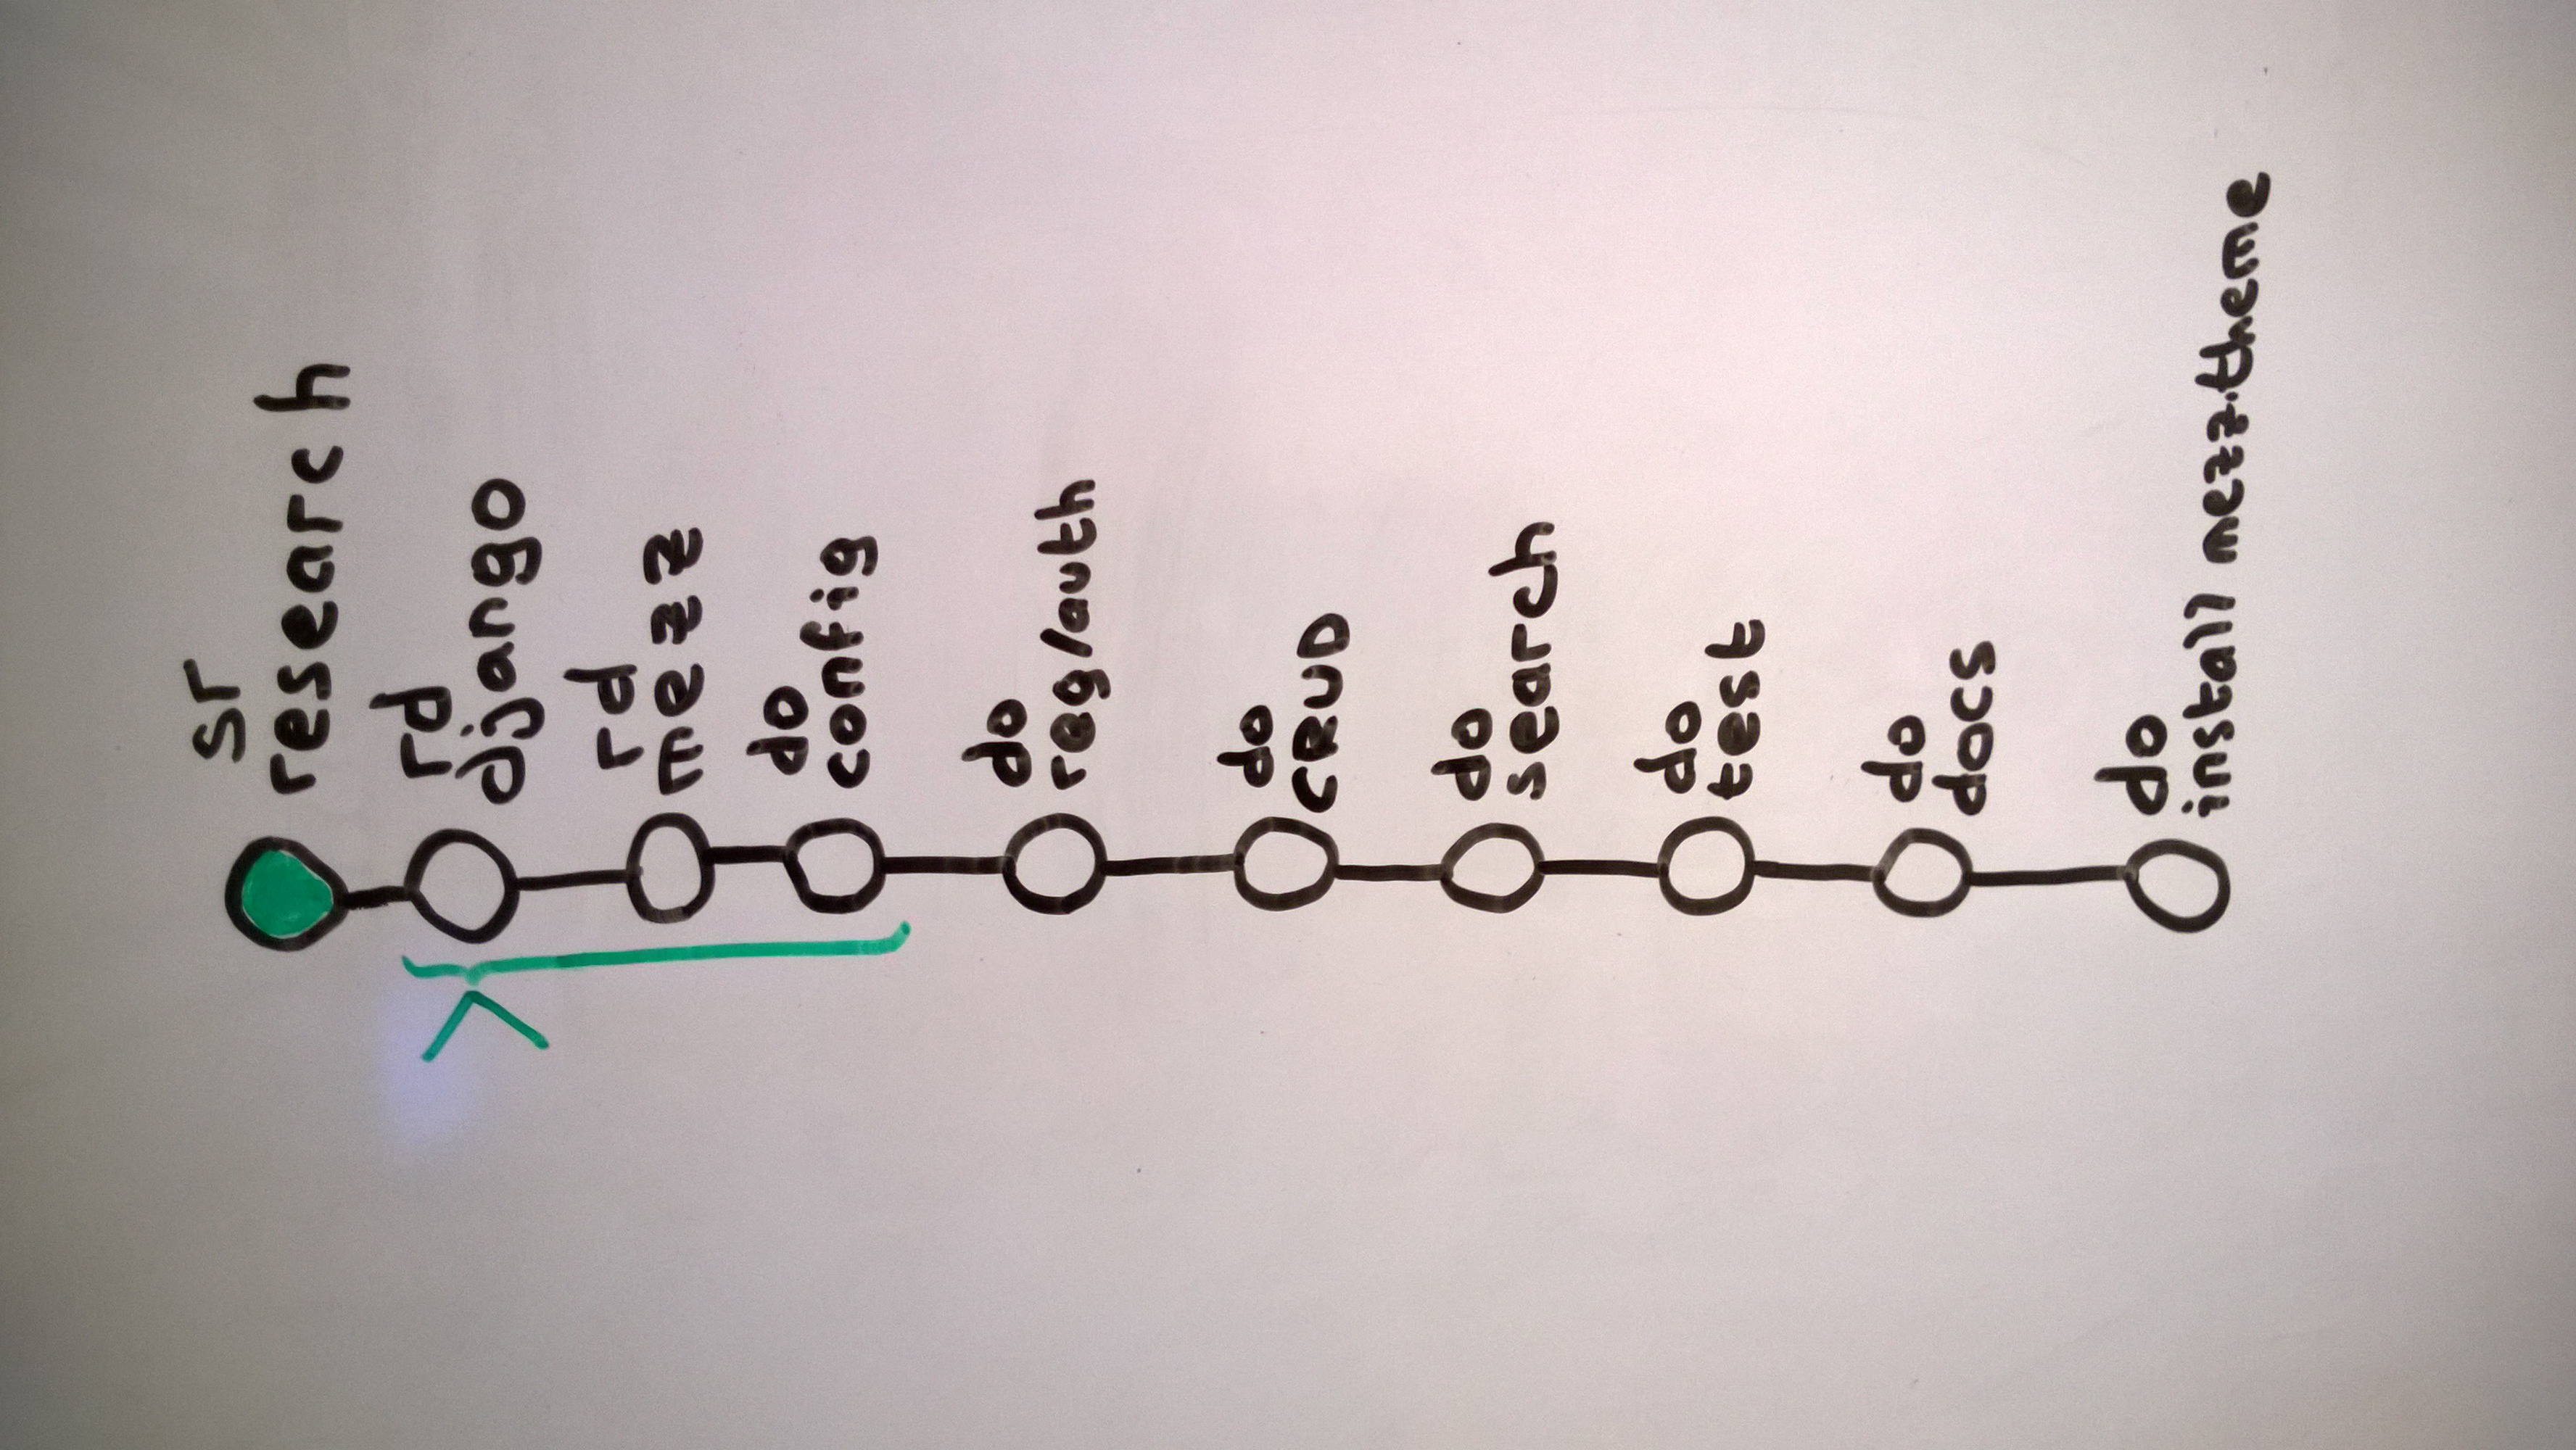 sr
research
rd
django
rd
mezz
do
config
do
reg/auth
do
CRUD
do
search
do
test
do
docs
do
install mezz.theme